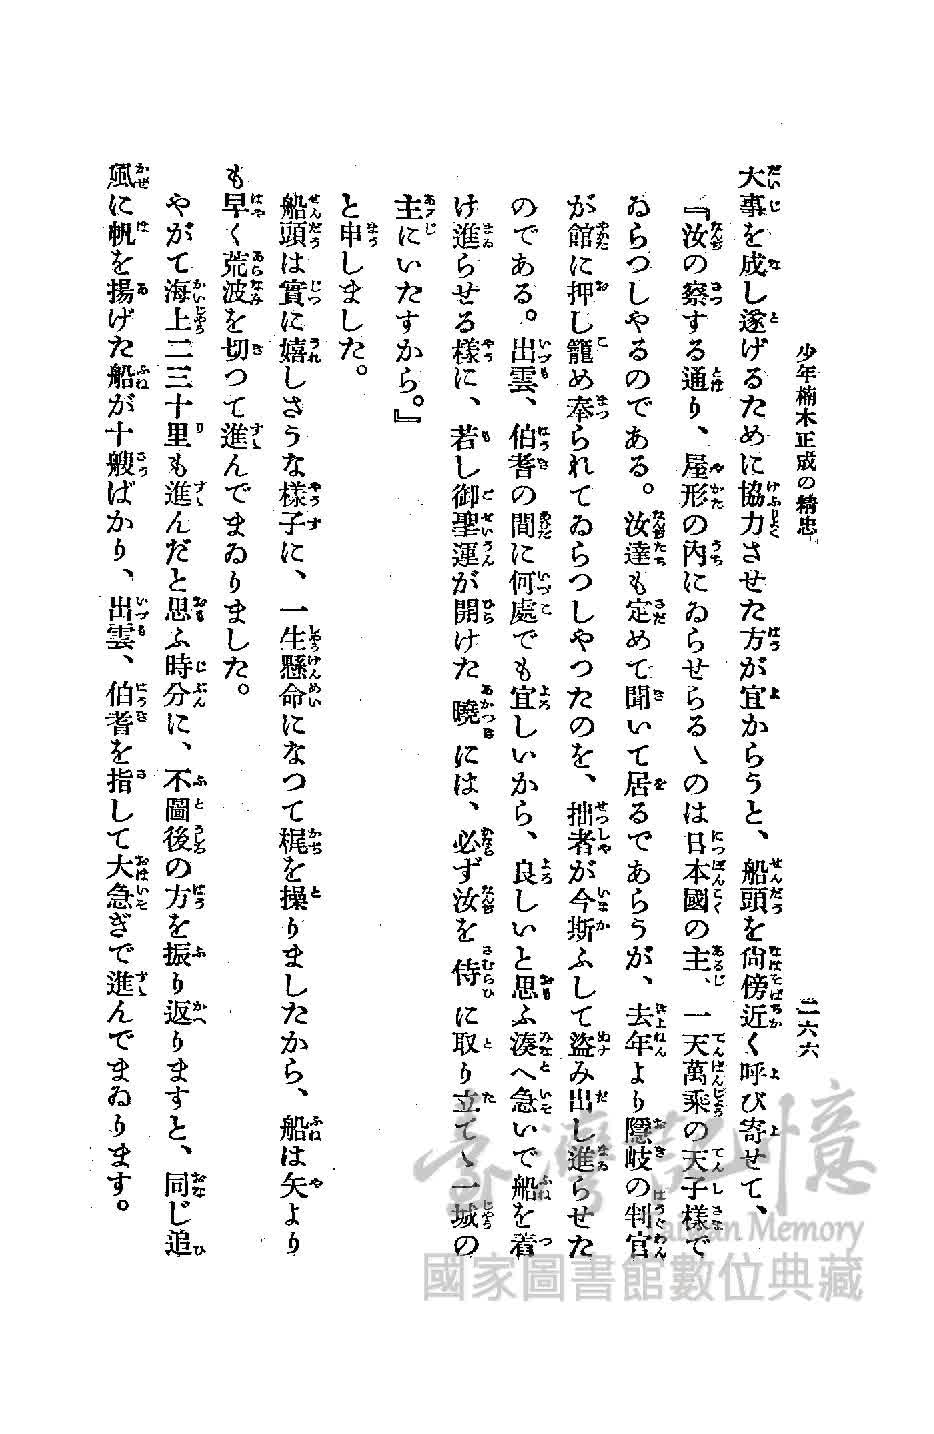 少年楠木正成の精忠
二六六
大事を成し遂げるために協力させた方が宜からうと、船頭を尚傍近く呼び寄せて、
『汝の察する通り、屋形の內にゐらせらるゝのは日本國の主、一天萬乘の天子樣で
ゐらつしやるのである。汝達も定めて聞いて居るであらうが、去年より隱岐の判官
が館に押し籠め奉られてゐらつしやつたのを、拙者が今斯ふして盜み出し進らせた
のである。出雲、伯耆の間に何處でも宜しいから、良しいと思ふ湊へ急いで船を着
け進らせる樣に、若し御聖運が開けた曉には、必ず汝を侍に取り立てゝ一城の
主にいたすから。』
と申しました。
船頭は實に嬉しさうな樣子に、一生懸命になつて梶を操りましたから、船は矢より
も早く荒波を切つて進んでまゐりました。
やがて海上二三十里も進んだと思ふ時分に、不圖後の方を振り返りますと、同じ追
風に帆を揚げた船が十艘ばかり、出雲、伯耆を指して大急ぎで進んでまゐります。
臺灣記憶
Taiwan Memory
國家圖書館數位典藏